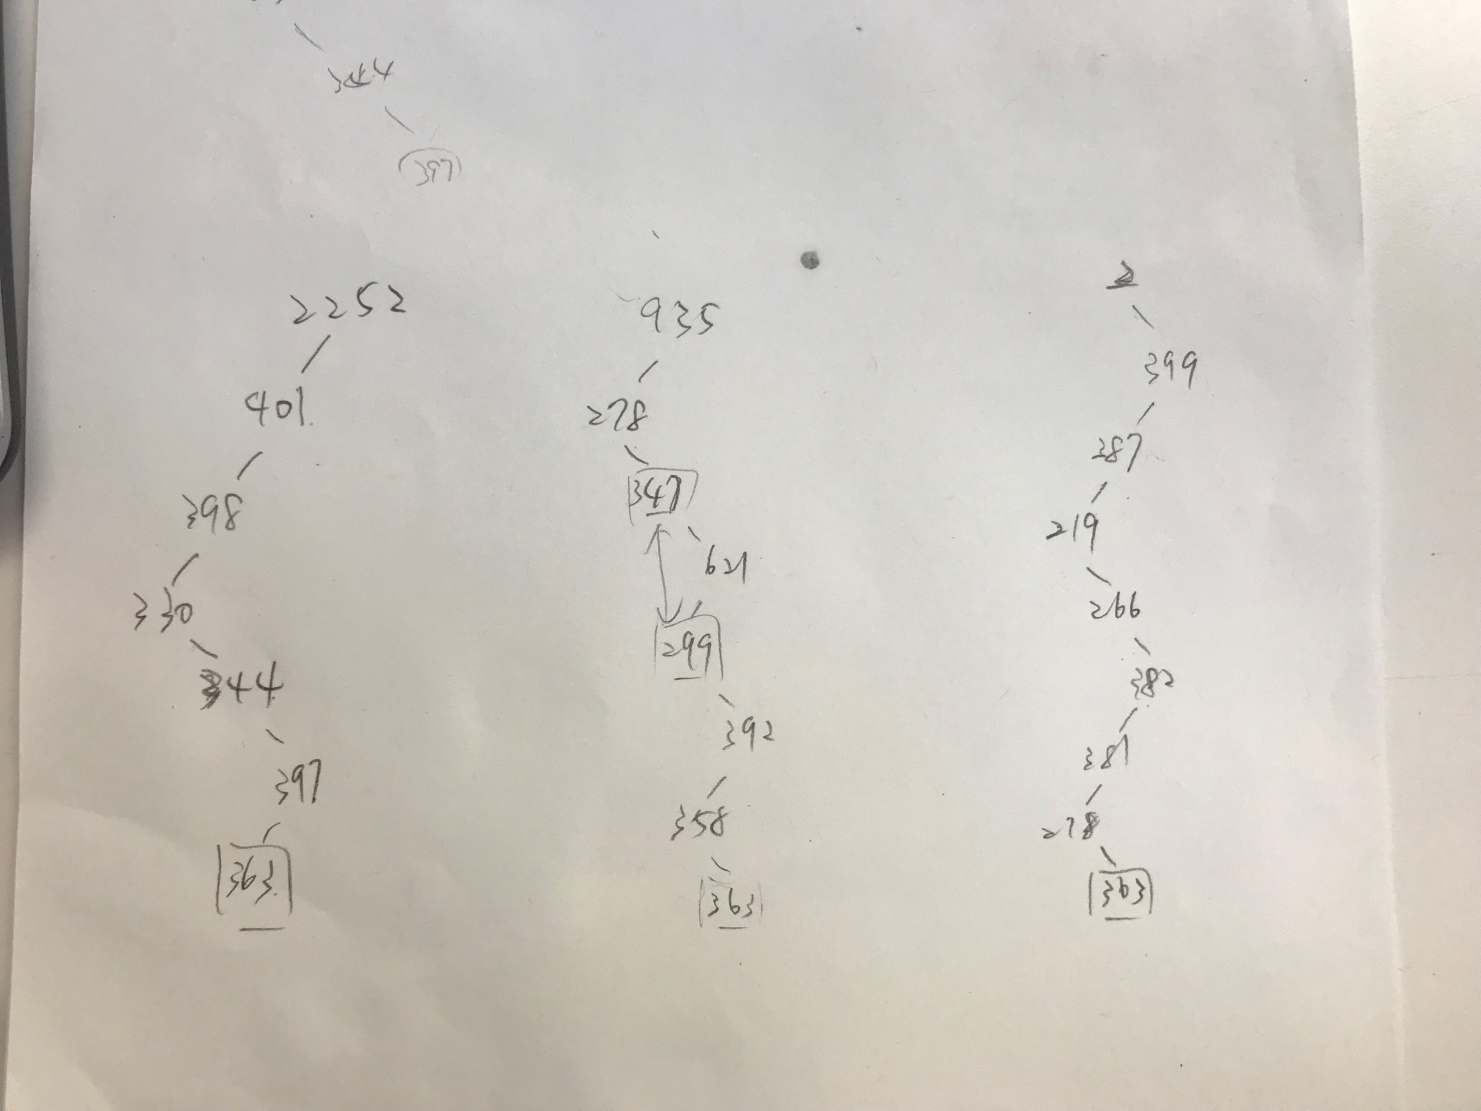 344
397
2252
401
398
330
344
397
363
935
278
347
621
299
392
358
363
2
399
387
219
266
382
381
278
363